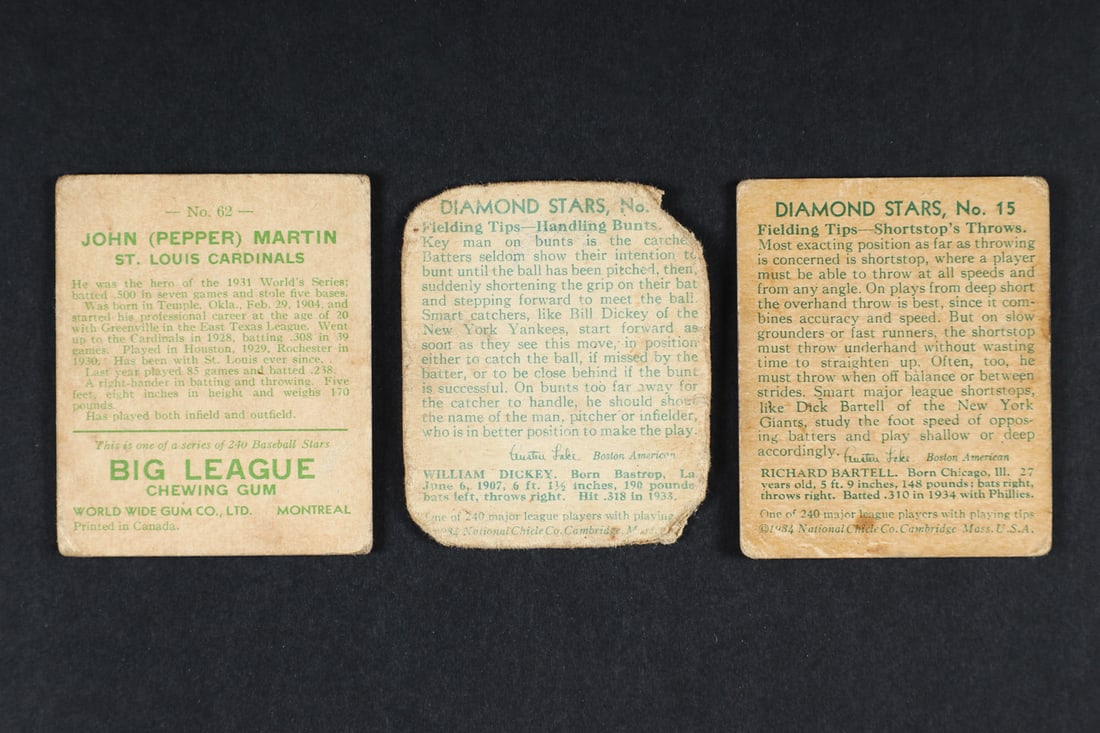 — No. 62 —
JOHN (PEPPER) MARTIN
ST. LOUIS CARDINALS
He was the hero of the 1931 World's Series;
batted .500 in seven games and stole five bases.
Was born in Temple, Okla., Feb. 29, 1904, and
started his professional career at the age of 20
with Greenville in the East Texas League. Went
up to the Cardinals in 1928, batting .308 in 39
games. Played in Houston, 1929, Rochester in
1930. Has been with St. Louis ever since.
Last year played 85 games and batted .238.
A right-hander in batting and throwing. Five
feet, eight inches in height and weighs 170
pounds.
Has played both infield and outfield.
This is one of a series of 240 Baseball Stars
BIG LEAGUE
CHEWING GUM
WORLD WIDE GUM CO., LTD. MONTREAL
Printed in Canada.
DIAMOND STARS, No.
Fielding Tips—Handling Bunts.
Key man on bunts is the catche
Batters seldom show their intention to
bunt until the ball has been pitched, then,
suddenly shortening the grip on their bat
and stepping forward to meet the ball.
Smart catchers, like Bill Dickey of the
New York Yankees, start forward as
soon as they see this move, in position
either to catch the ball, if missed by the
batter, or to be close behind if the bunt
is successful. On bunts too far away for
the catcher to handle, he should shout
the name of the man, pitcher or infielder,
who is in better position to make the play.
Austen Lake Boston American
WILLIAM DICKEY. Born Bastrop, La.
June 6, 1907, 6 ft. 1½ inches, 190 pounds
bats left, throws right. Hit .318 in 1933.
One of 240 major league players with playing
34 National Chicle Co. Cambridge, Mass.
DIAMOND STARS, No. 15
Fielding Tips—Shortstop's Throws.
Most exacting position as far as throwing
is concerned is shortstop, where a player
must be able to throw at all speeds and
from any angle. On plays from deep short
the overhand throw is best, since it com-
bines accuracy and speed. But on slow
grounders or fast runners, the shortstop
must throw underhand without wasting
time to straighten up. Often, too, he
must throw when off balance or between
strides. Smart major league shortstops,
like Dick Bartell of the New York
Giants, study the foot speed of oppos-
ing batters and play shallow or deep
accordingly. Austen Lake Boston American
RICHARD BARTELL. Born Chicago, Ill. 27
years old, 5 ft. 9 inches, 148 pounds; bats right,
throws right. Batted .310 in 1934 with Phillies.
One of 240 major league players with playing tips
©1934 National Chicle Co. Cambridge Mass. U.S.A.